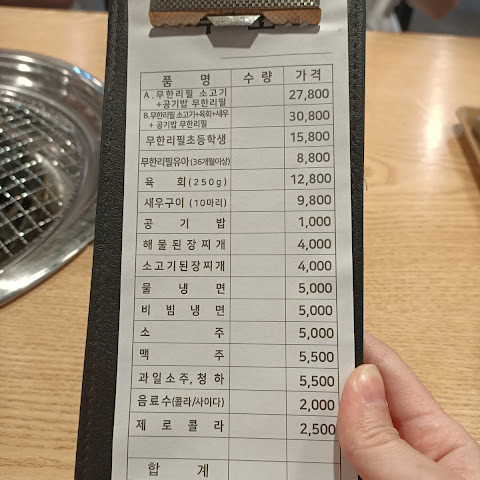 품 명 수 량 가 격
A.무한리필 소고기 27,800
+공기밥 무한리필
B.무한리필 소고기+육회+새우 30,800
+ 공기밥 무한리필
무한리필초등학생 15,800
무한리필유아(36개월이상) 8,800
육 회(250g) 12,800
새우구이 (10마리) 9,800
공 기 밥 1,000
해물된장찌개 4,000
소고기된장찌개 4,000
물 냉 면 5,000
비 빔 냉 면 5,000
소 주 5,000
맥 주 5,500
과일소주,청하 5,500
음료수(콜라/사이다) 2,000
제 로 콜 라 2,500
합 계